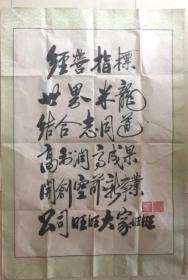 經營指標
世界米龍
結合志同道
高利潤高成果
開創空前新事業
公司旺旺大家旺旺